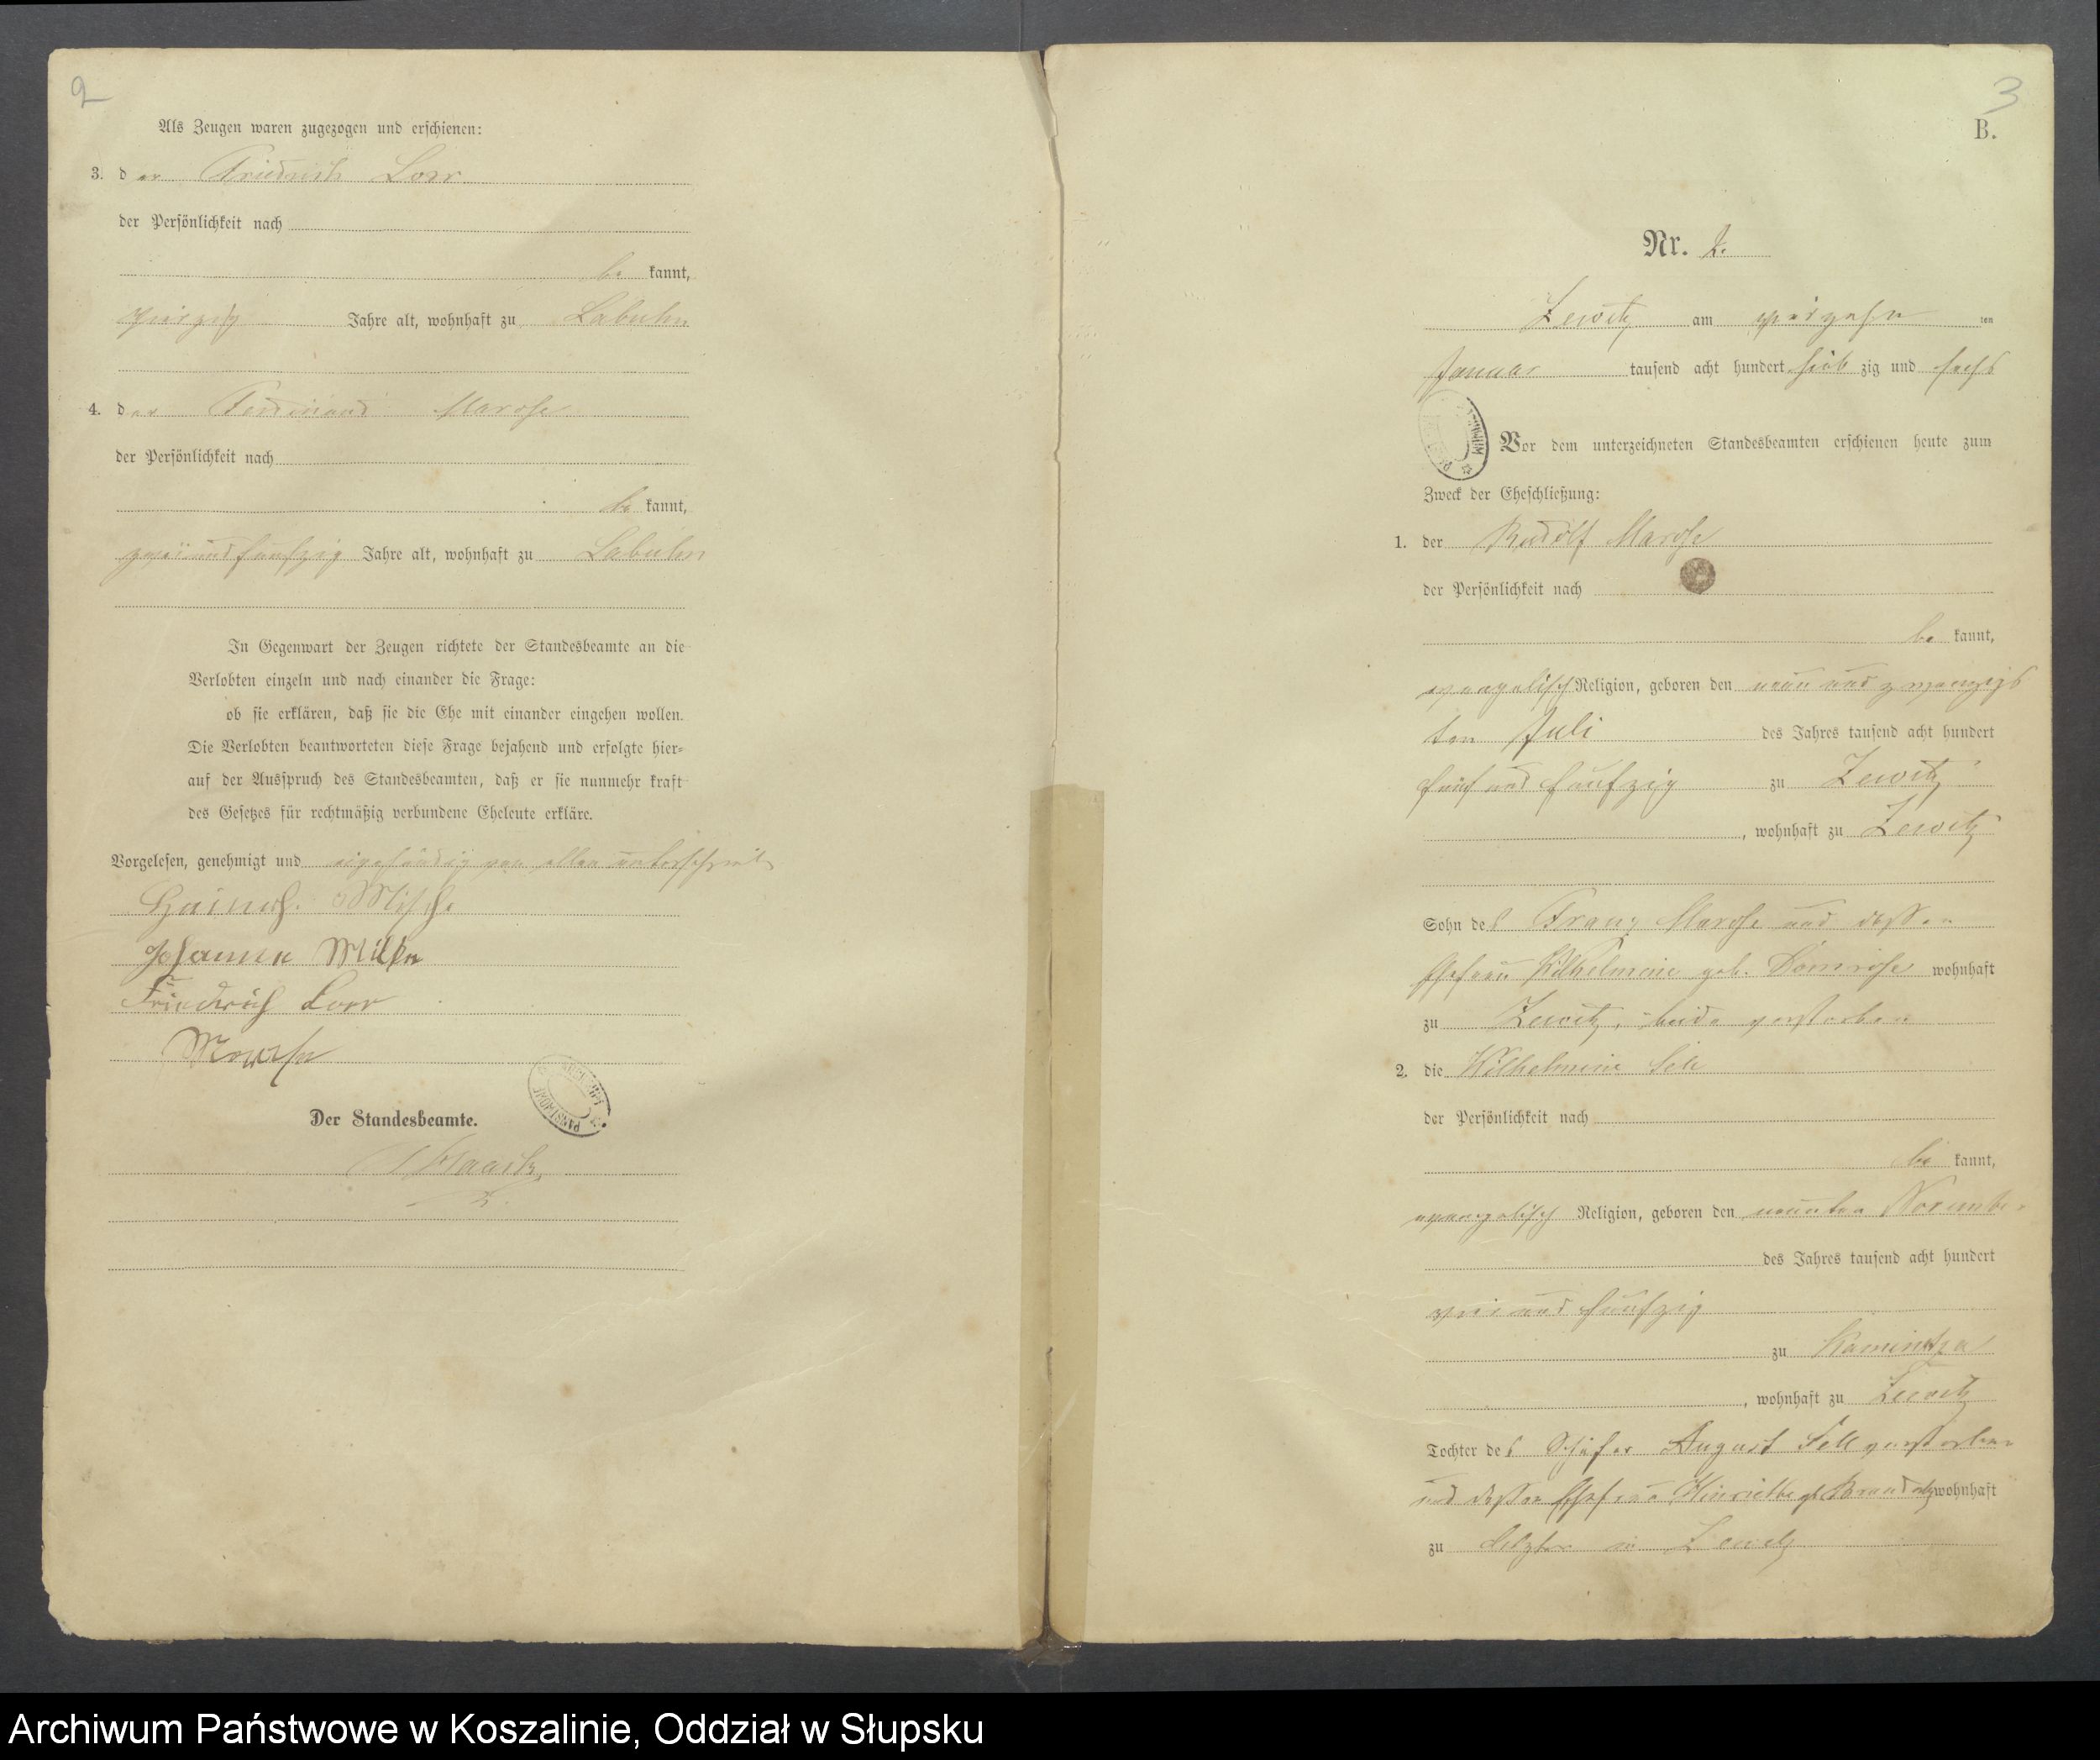 2
Als Zeugen waren zugezogen und erschienen:
3. der Friedrich Lorr
der Persönlichkeit nach
be kannt,
vierzig Jahre alt, wohnhaft zu Labuhn
4. der Ferdinand Marose
der Persönlichkeit nach
be kannt,
zwei und fünfzig Jahre alt, wohnhaft zu Labuhn
In Gegenwart der Zeugen richtete der Standesbeamte an die
Verlobten einzeln und nach einander die Frage:
ob sie erklären, daß sie die Ehe mit einander eingehen wollen.
Die Verlobten beantworteten diese Frage bejahend und erfolgte hier-
auf der Ausspruch des Standesbeamten, daß er sie nunmehr kraft
des Gesetzes für rechtmäßig verbundene Eheleute erkläre.
Vorgelesen, genehmigt und eigenhändig von allen unterschrieb
Heinrich
Johanna Milke
Friedrich Lorr
Marose
Der Standesbeamte.
3
B.
Nr. 2.
Zewitz am vierzehn ten
Januar tausend acht hundert sieb zig und sechs
Vor dem unterzeichneten Standesbeamten erschienen heute zum
Zweck der Eheschließung:
1. der Rudolf Marose
der Persönlichkeit nach
be kannt,
evangelisch Religion, geboren den neun und zwanzigs
ten Juli des Jahres tausend acht hundert
fünf und fünfzig zu Zewitz
, wohnhaft zu Zewitz
Sohn des Franz Marose und dessen
Ehefrau Wilhelmine geb. Domrose wohnhaft
zu Zewitz, beide verstorben
2. die Wilhelmine Sell
der Persönlichkeit nach
be kannt,
evangelisch Religion, geboren den neunten November
des Jahres tausend acht hundert
drei und fünfzig
zu Kamintza
, wohnhaft zu Zewitz
Tochter des Schäfer August Sell verstorben
und dessen Ehefrau Henriette wohnhaft
zu letztere in Zewitz
Archiwum Państwowe w Koszalinie, Oddział w Słupsku